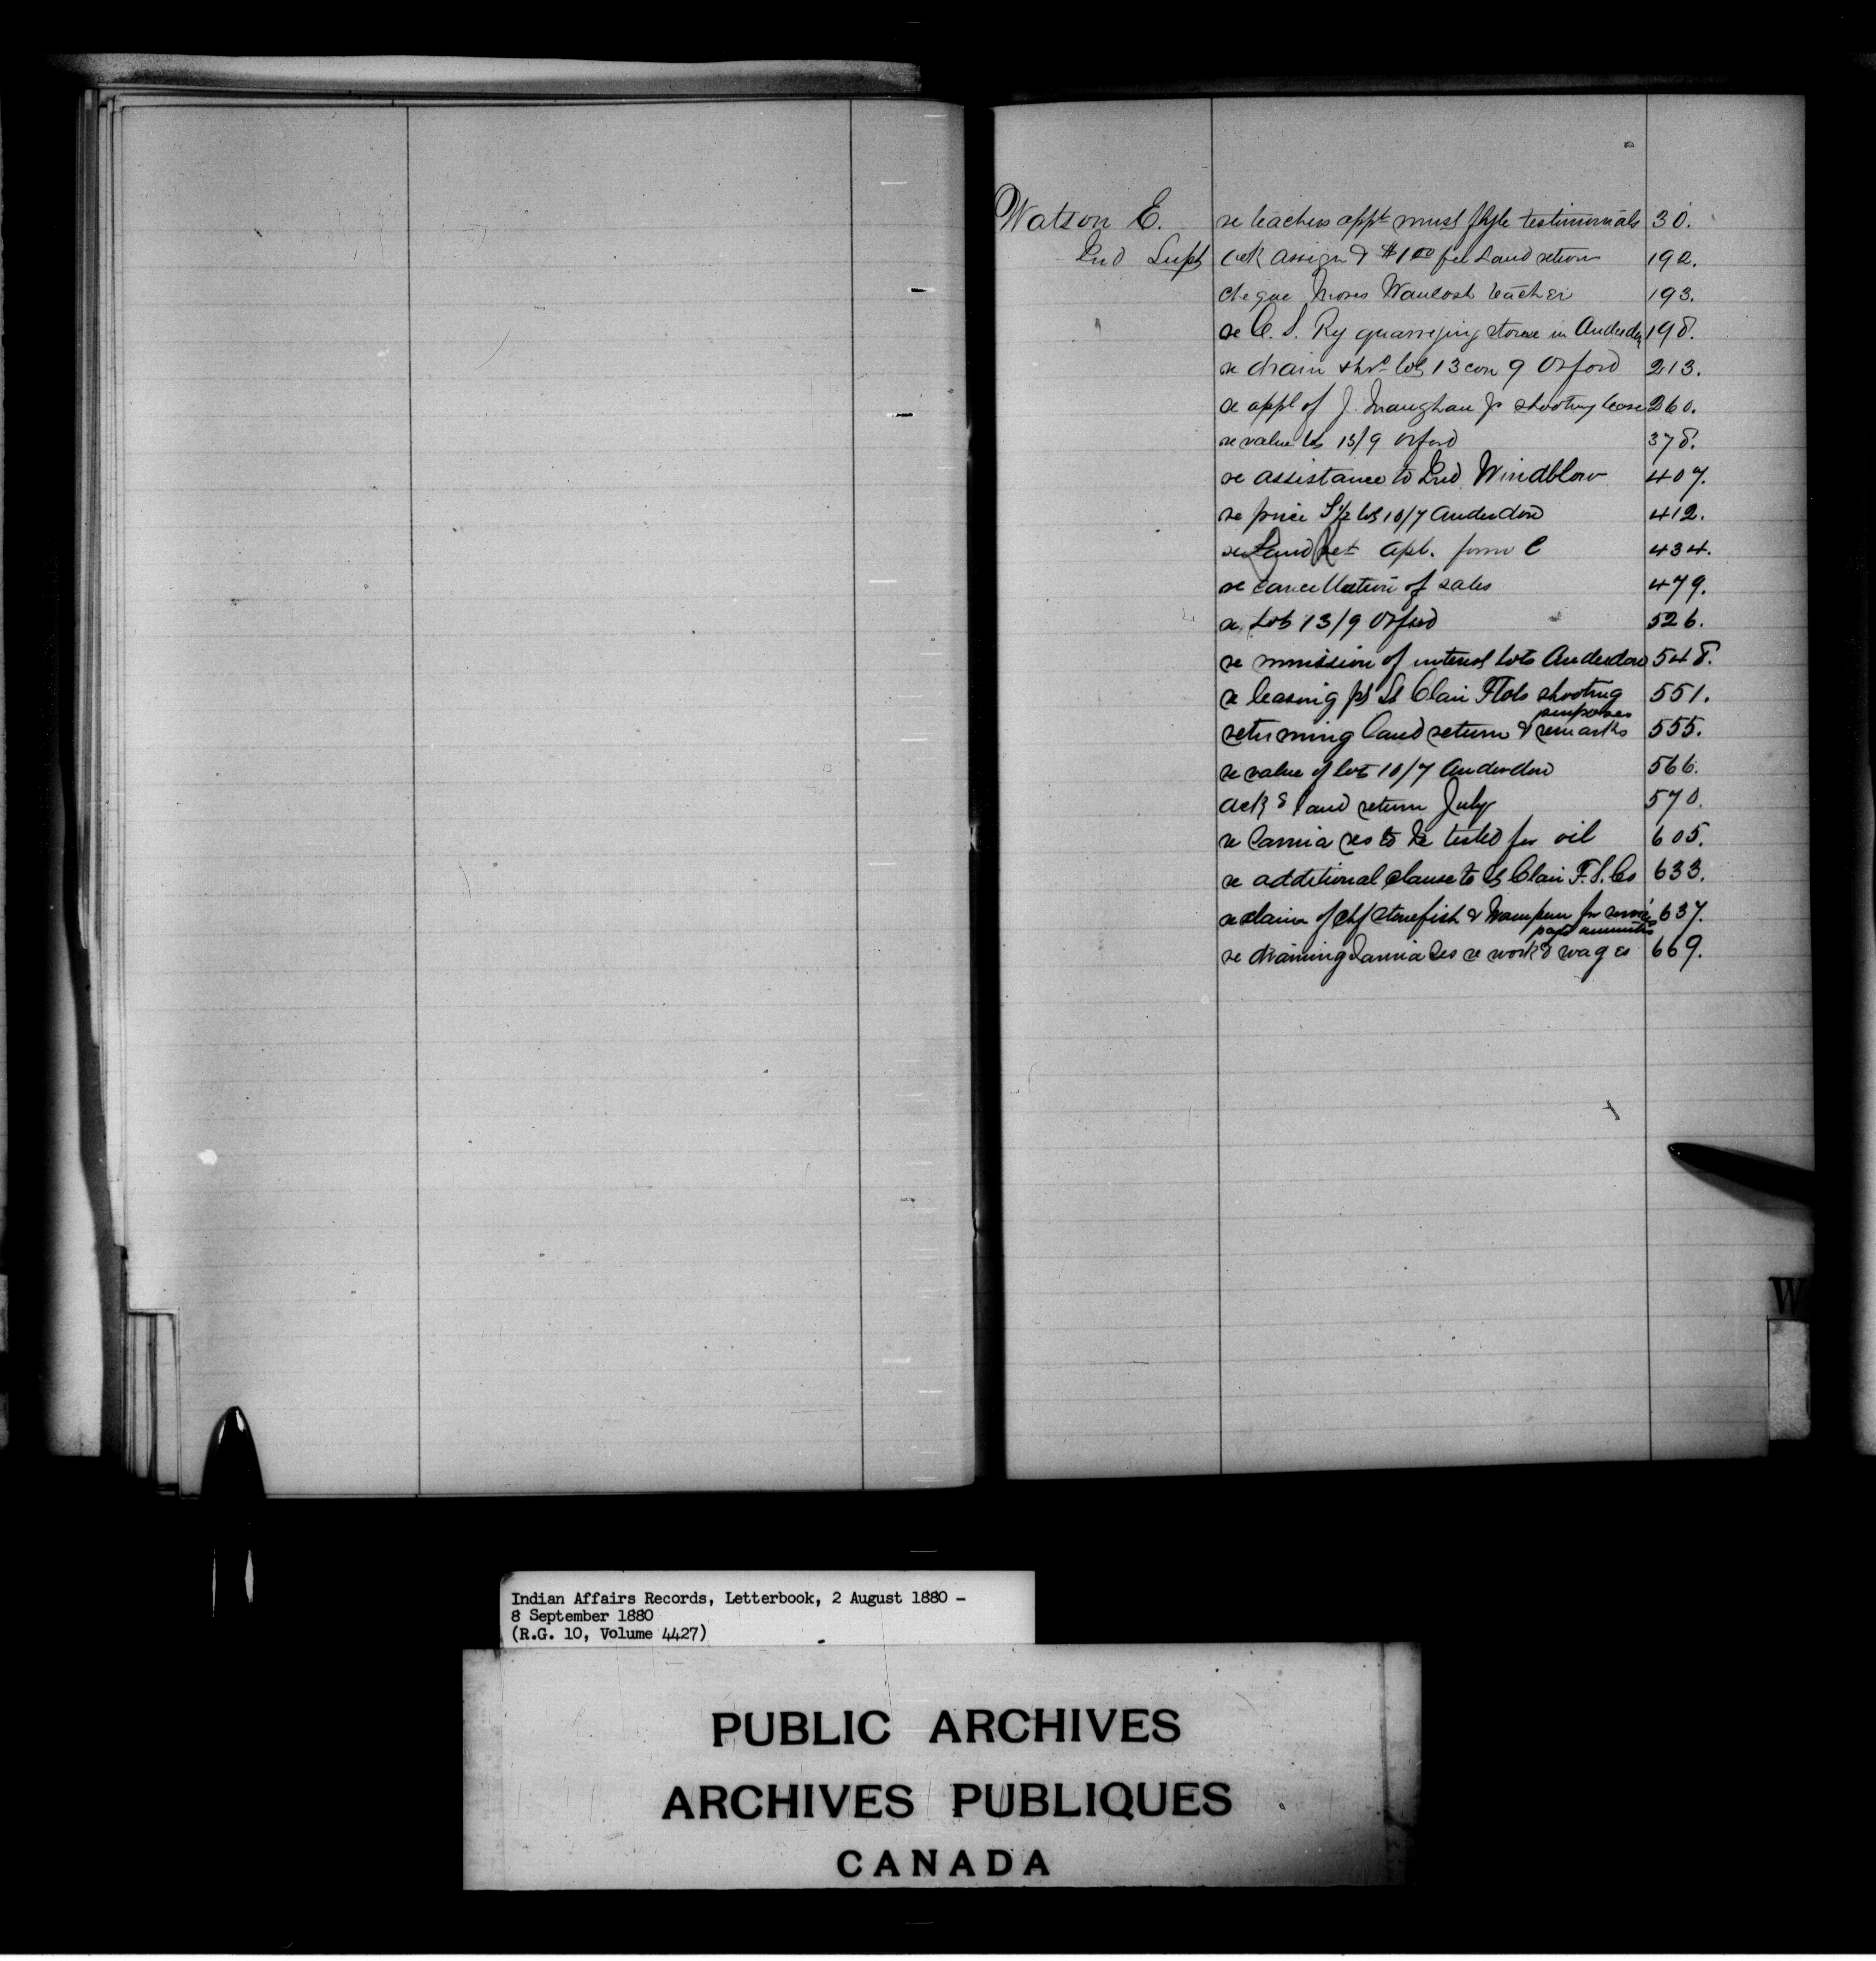 Watson E. re teachers appt must furth testimonials 30.
Ind Supt ack assign & $1.00 fee Land return 192.
cheque Moses Waulosh teacher 193.
re C. S. Ry quarrying stone in Anderdon 198.
re drain thro lot 13 con 9 Orford 213.
re appl of J. Maughan Jr shooting lease 260.
re value lot 13/9 Orford 378.
re assistance to Ind. Windblow 407.
re price S 1/2 lot 10/7 Anderdon 412.
re Land Ret Apl. form C 434.
re cancellation of sales 479.
re Lot 13/9 Orford 526.
re remission of interest lots Anderdon 548.
re leasing pt St Clair Flats shooting purposes 551.
returning land return & remarks 555.
re value of lot 10/7 Anderdon 566.
ack g land return July 570.
re Sarnia res to be tested for oil 605.
re additional clause to St Clair F. S. Co 633.
re claim of chf Stonefish & Wampum for services 637.
re draining Sarnia Res re work & wages 669.
W
Indian Affairs Records, Letterbook, 2 August 1880 -
8 September 1880
(R.G. 10, Volume 4427)
PUBLIC ARCHIVES
ARCHIVES PUBLIQUES
CANADA